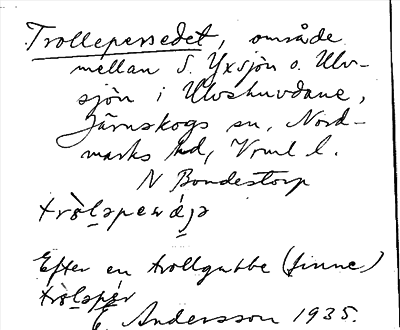 Trollepersedet, område
mellan S. Yxsjön o. Ulv-
sjön i Ulvshuvdane,
Järnskogs sn, Nord-
marks hd, Vrml l.
N Bondestorp
Efter en trollgubbe (finne)
E. Andersson 1935.